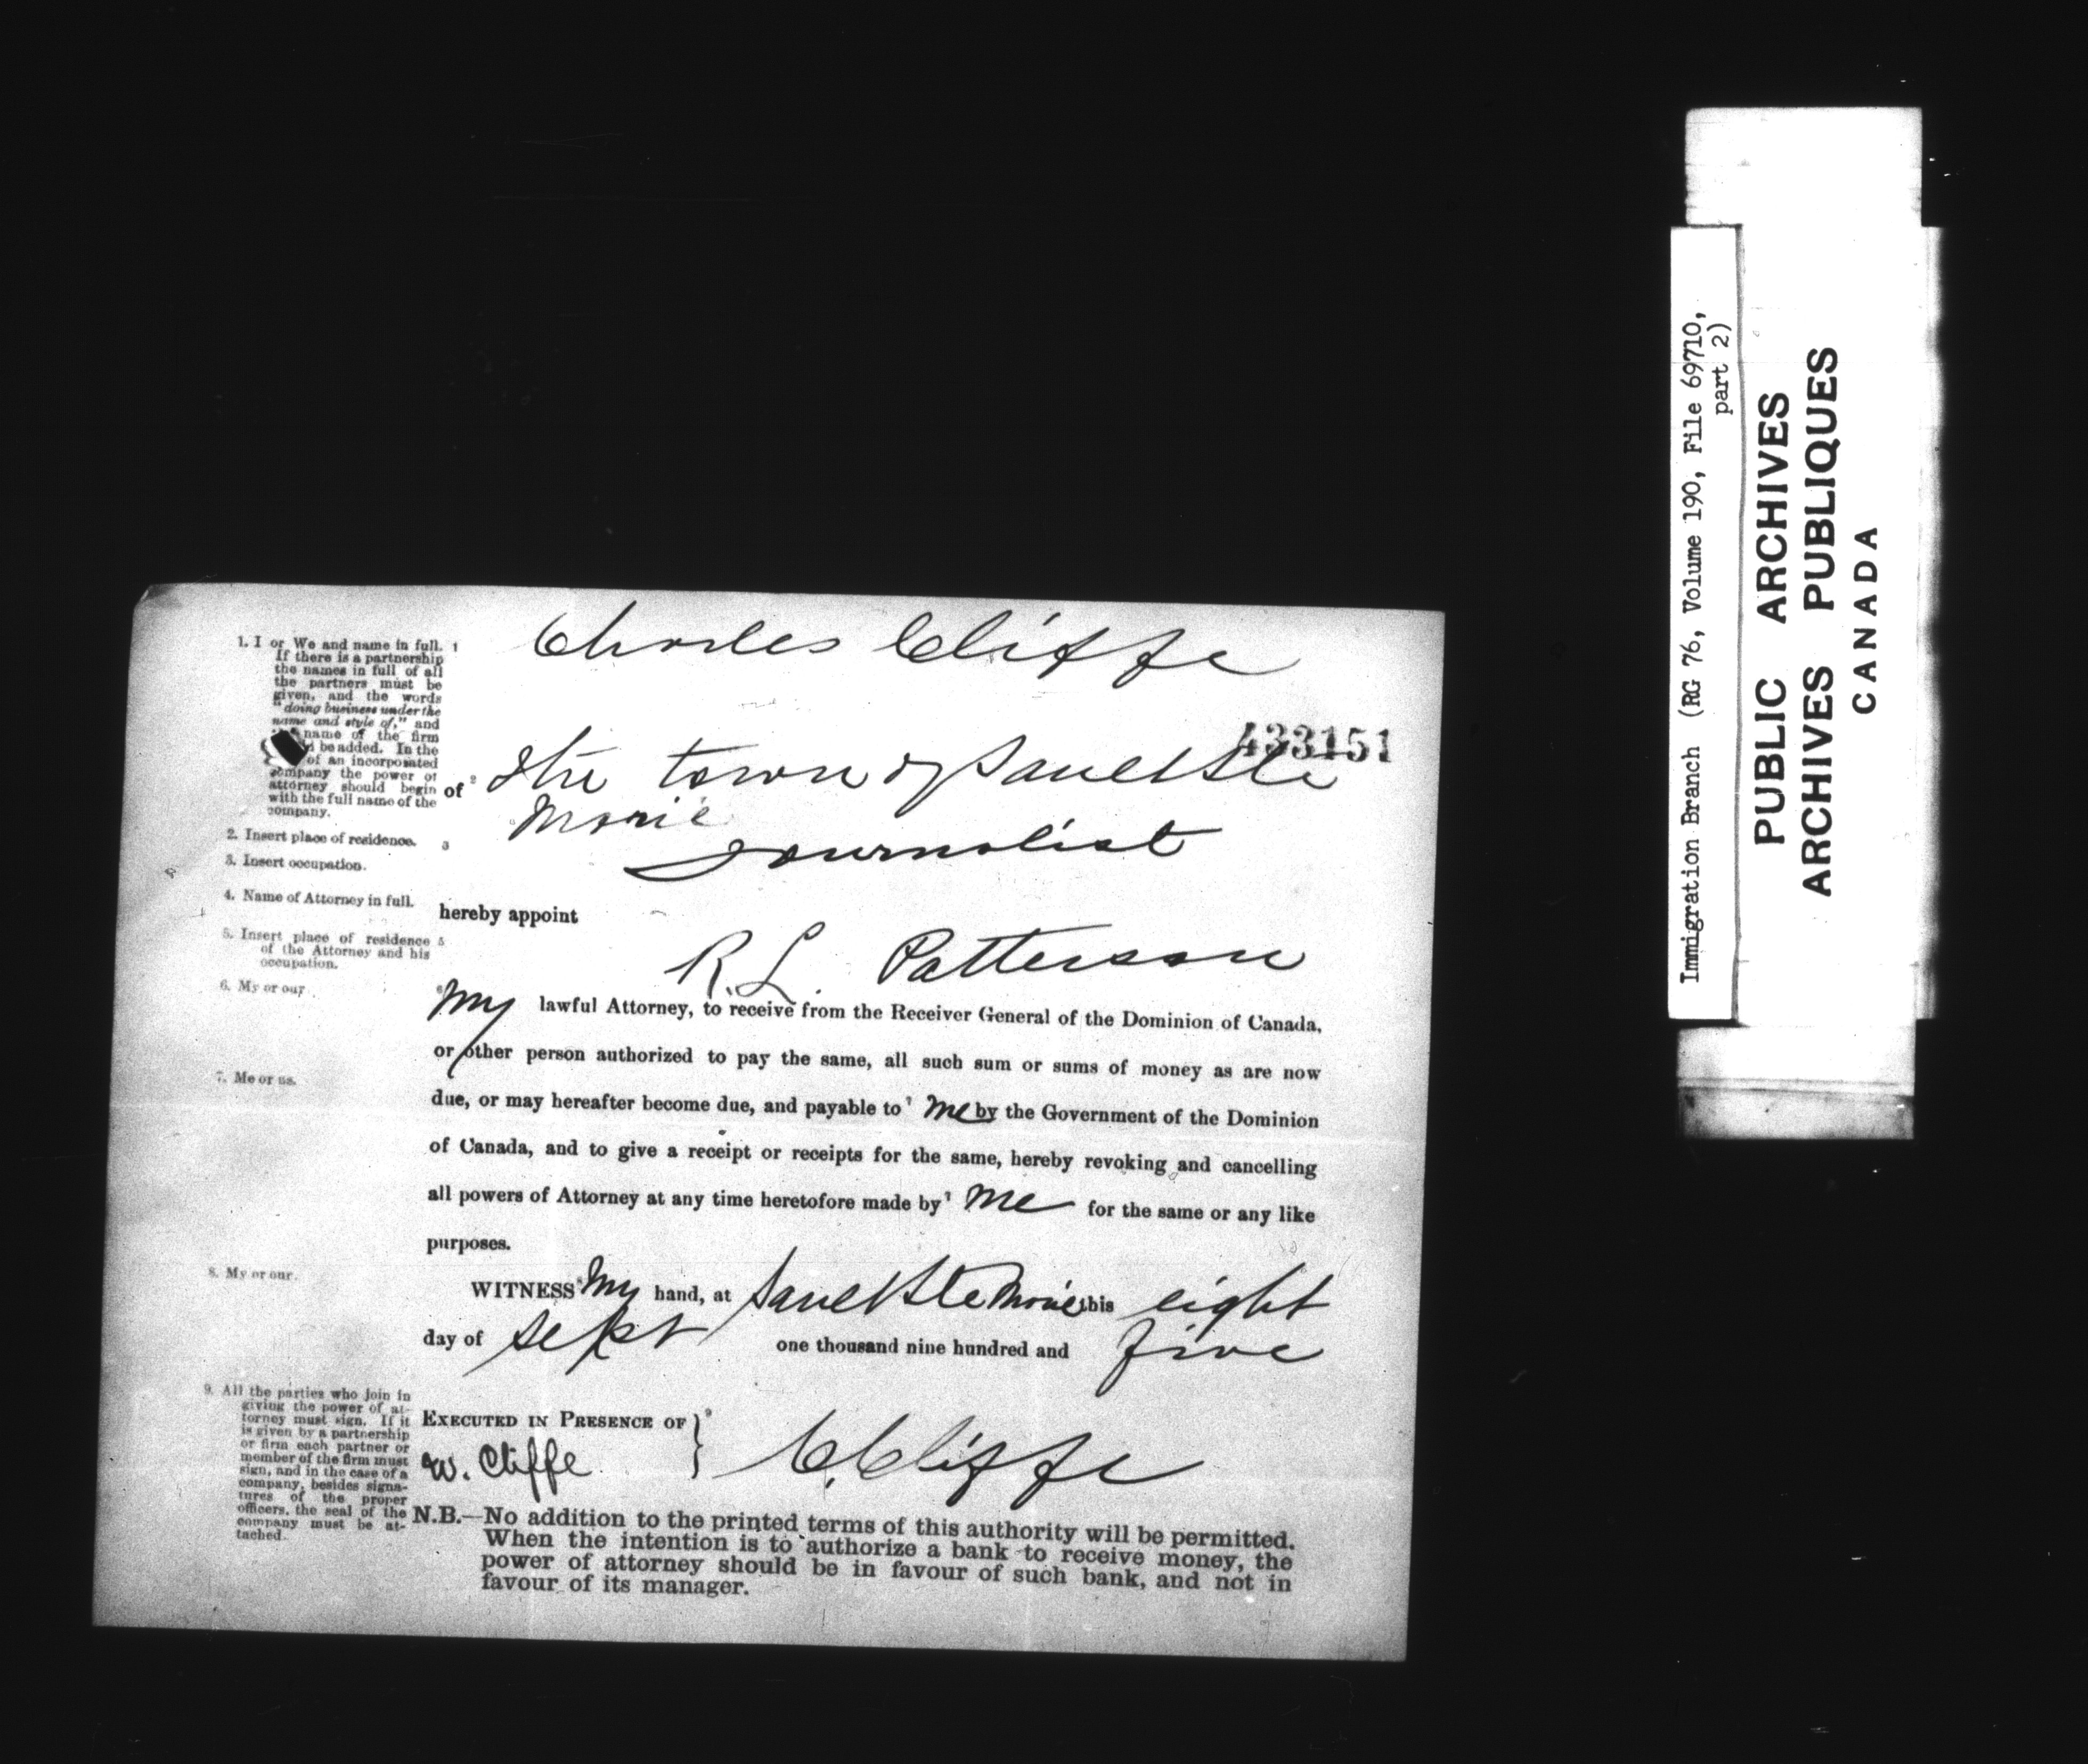 1. I or We and name in full.
If there is a partnership
the names in full of all
the partners must be
given, and the words
"doing business under the
name and style of," and
name of the firm
be added. In the
of an incorporated
company the power of
attorney should begin
with the full name of the
company.
2. Insert place of residence.
3. Insert occupation.
4. Name of Attorney in full.
5. Insert place of residence
of the Attorney and his
occupation.
6. My or our
7. Me or us.
8. My or our.
9. All the parties who join in
giving the power of at-
torney must sign. If it
is given by a partnership
or firm each partner or
member of the firm must
sign, and in the case of a
company, besides signa-
tures of the proper
officers, the seal of the
company must be at-
tached.
1 Charles Cliffe
433151
of 2 the town of Sault Ste
Marie
3 Journalist
hereby appoint
5 R. L. Patterson
6 My lawful Attorney, to receive from the Receiver General of the Dominion of Canada,
or other person authorized to pay the same, all such sum or sums of money as are now
due, or may hereafter become due, and payable to 7 me by the Government of the Dominion
of Canada, and to give a receipt or receipts for the same, hereby revoking and cancelling
all powers of Attorney at any time heretofore made by 7 me for the same or any like
purposes.
WITNESS 8 My hand, at Sault Ste Marie this eight
day of Sept one thousand nine hundred and five
EXECUTED IN PRESENCE OF } 9
W. Cliffe C. Cliffe
N.B.—No addition to the printed terms of this authority will be permitted.
When the intention is to authorize a bank to receive money, the
power of attorney should be in favour of such bank, and not in
favour of its manager.
Immigration Branch (RG 76, Volume 190, File 69710,
part 2)
PUBLIC ARCHIVES
ARCHIVES PUBLIQUES
CANADA